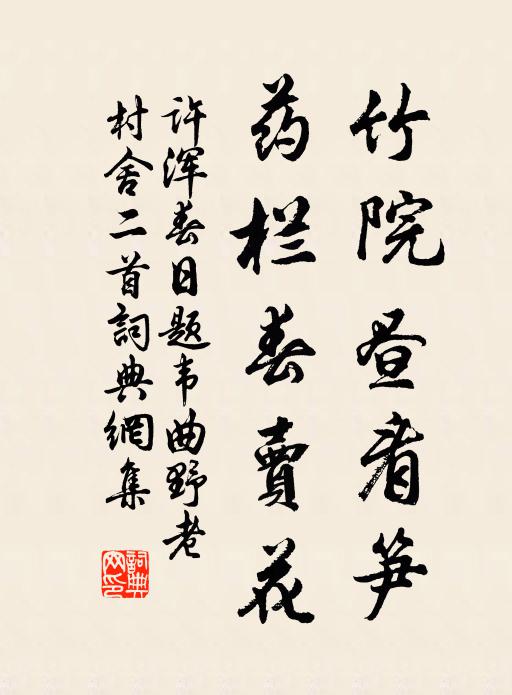 竹院昼看笋
药栏春賣花
许浑春日题韦曲野老
村舍二首詞典網集
詞典网印